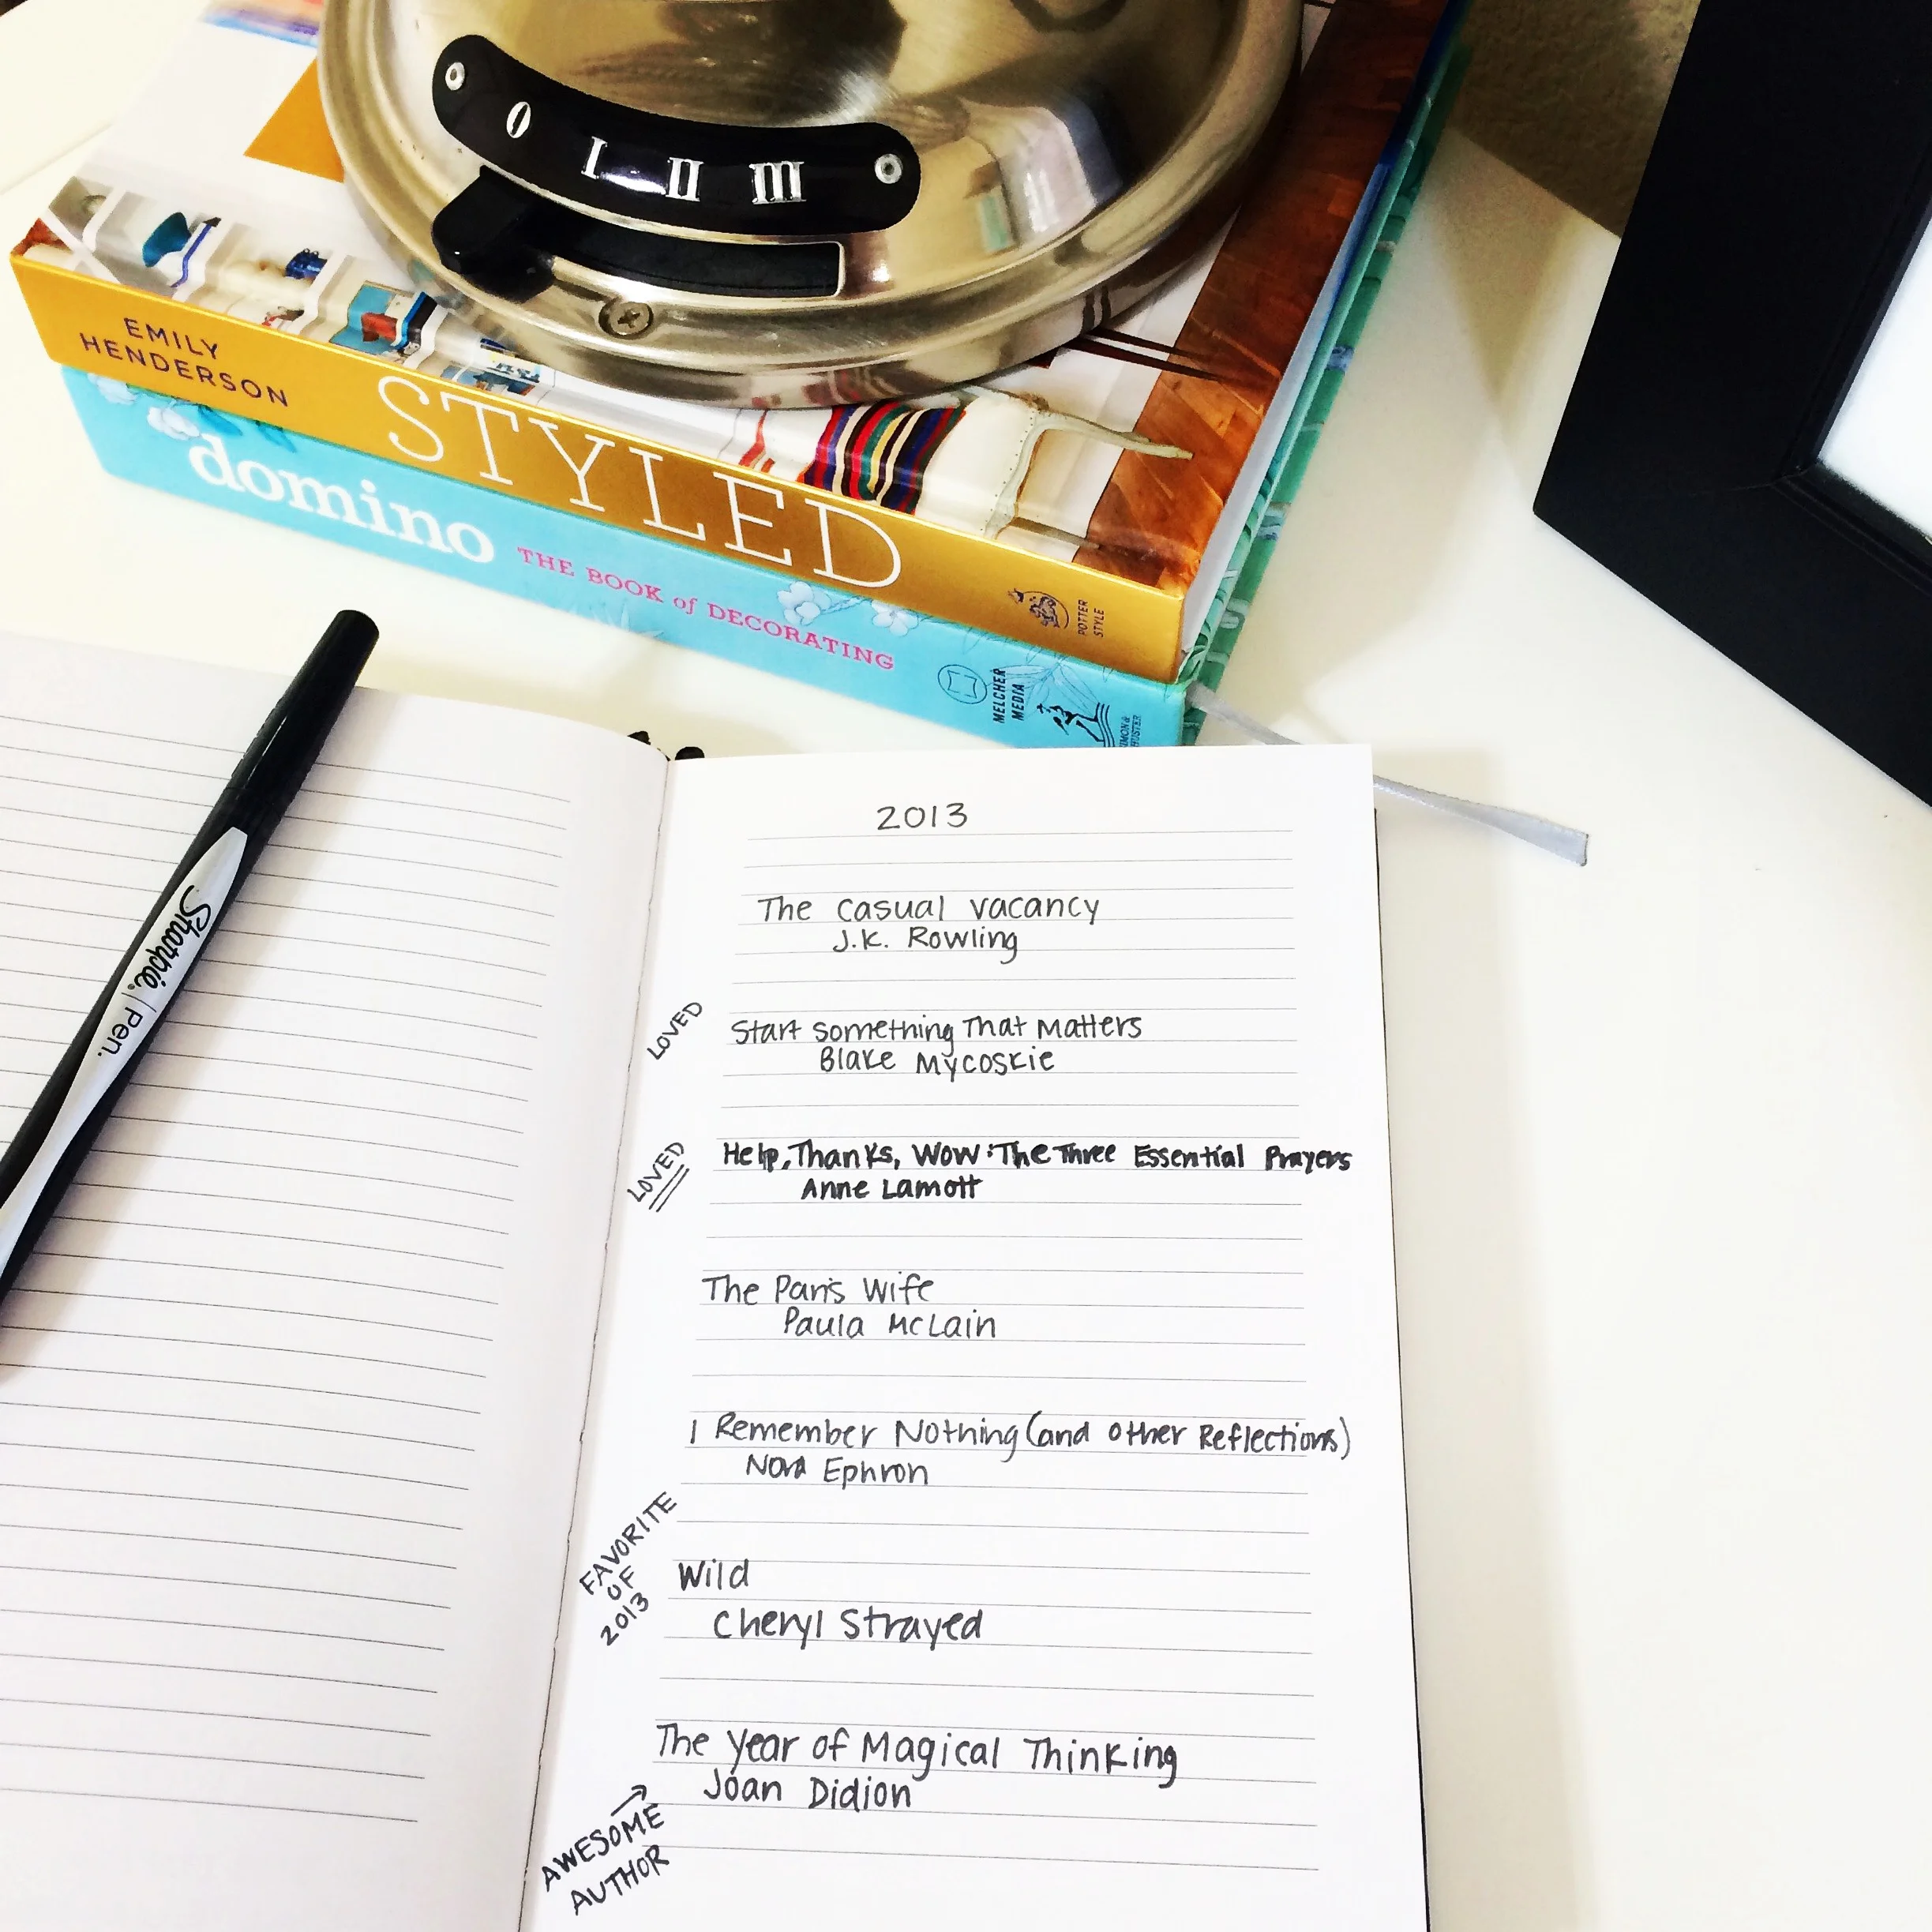 O I II III
EMILY
HENDERSON
STYLED
POTTER
STYLE
domino THE BOOK of DECORATING
MELCHER
MEDIA
SIMON &
SCHUSTER
Sharpie. | Pen.
2013
The Casual Vacancy
J.K. Rowling
LOVED
Start Something That Matters
Blake Mycoskie
LOVED
Help, Thanks, Wow: The Three Essential Prayers
Anne Lamott
The Paris Wife
Paula McLain
I Remember Nothing (and other Reflections)
Nora Ephron
FAVORITE
OF
2013
Wild
Cheryl Strayed
The Year of Magical Thinking
Joan Didion
AWESOME
AUTHOR